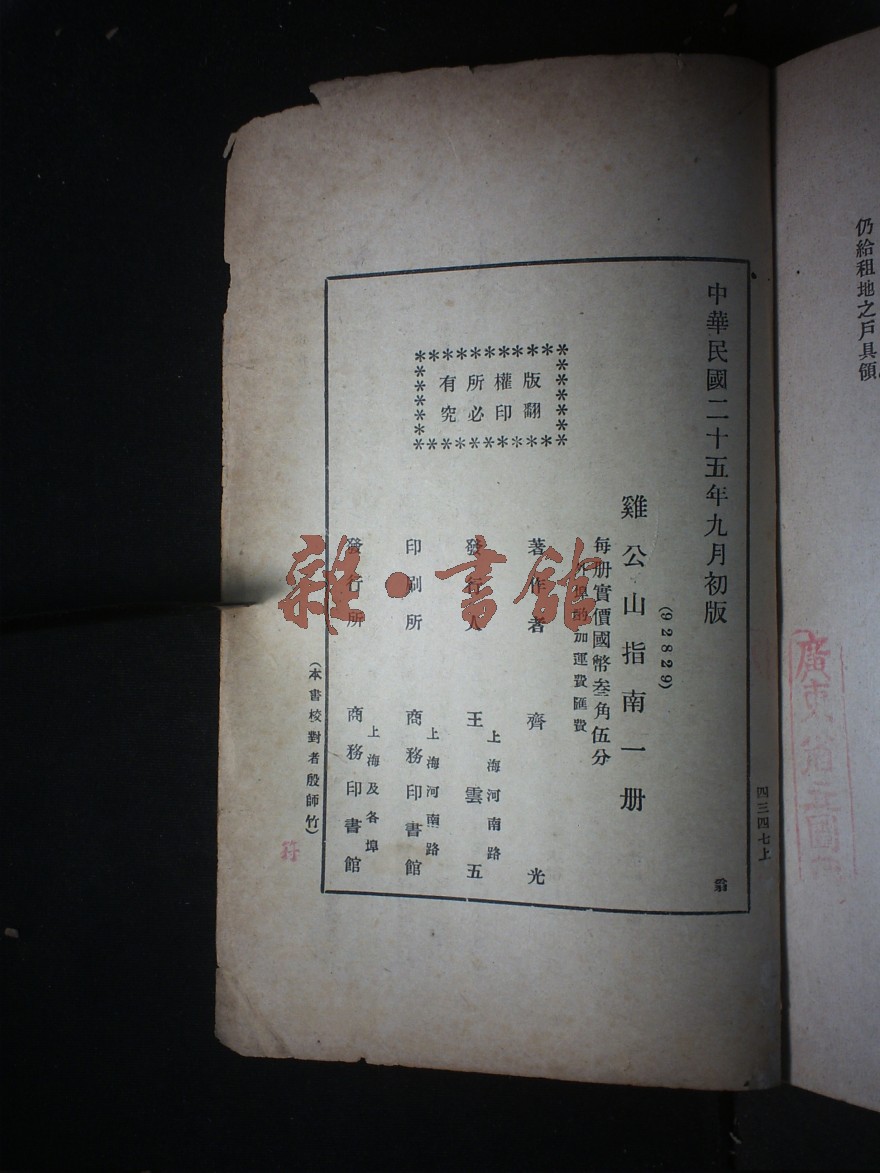 仍給租地之戶具領
四三四七上
中華民國二十五年九月初版
翁
(92829)
雞公山指南一册
每册實價國幣叁角伍分
外埠酌加運費匯費
版權所有
翻印必究
著作者 齊光
發行人 王雲五
上海河南路
印刷所 商務印書館
上海河南路
發行所 商務印書館
上海及各埠
(本書校對者殷師竹)
雜·書館